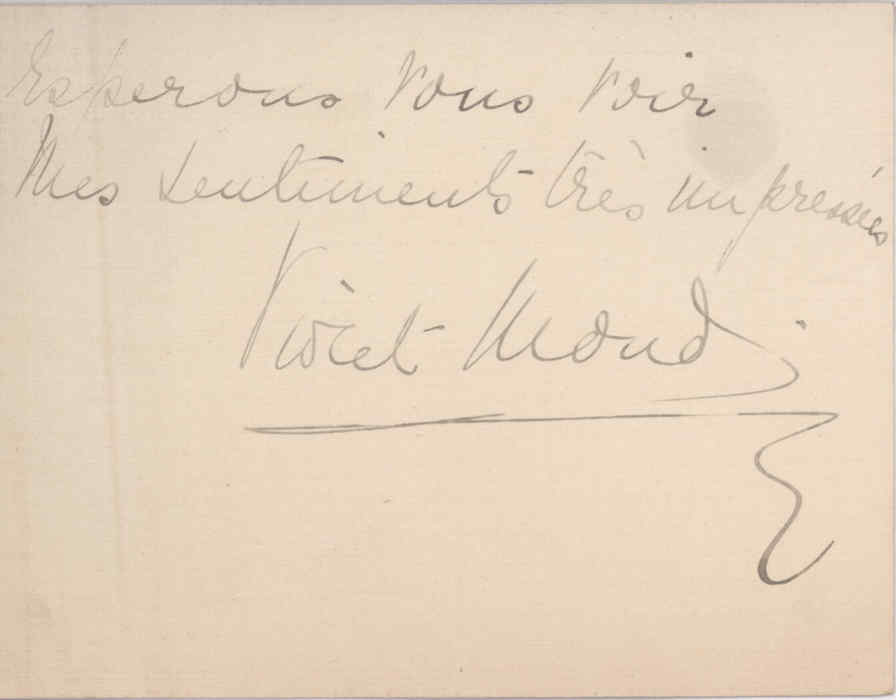 Esperons vous voir
Mes sentiments très impressées
Violet Mond